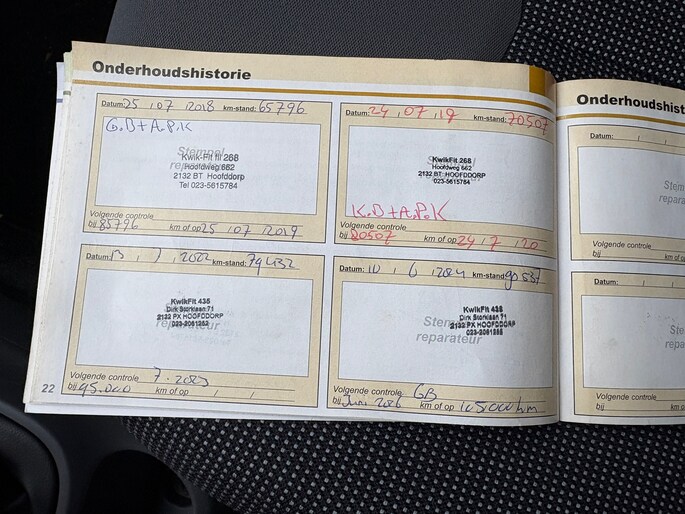 Onderhoudshistorie
Datum: 25 / 07 / 2018 km-stand: 65796
G.B + A.P.K
Stempel
reparateur
Kwik-Fit fil 268
Hoofdweg 662
2132 BT Hoofddorp
Tel 023-5615784
Volgende controle
bij 85796 km of op 25 / 07 / 2019
Datum: 24 / 07 / 19 km-stand: 70507
Stempel
reparateur
KwikFit 268
Hoofdweg 662
2132 BT HOOFDDORP
023-5615784
K.B + A.P.K
Volgende controle
bij 80507 km of op 24 / 7 / 20
Datum: 13 / 7 / 2022 km-stand: 79432
KwikFit 435
Dirk Storklaan 71
2132 PX HOOFDDORP
Volgende controle 7-2023
bij 95.000 km of op / /
Datum: 10 / 6 / 2024 km-stand: 90537
Stempel
reparateur
KwikFit 435
Dirk Storklaan 71
2132 PX HOOFDDORP
Volgende controle GB
bij Juni 2026 km of op 105000 km
22
Onderhoudshist
Datum: / /
Stem
repara
Volgende controle
bij km of op
Datum: / /
Stem
repara
Volgende controle
bij km of op